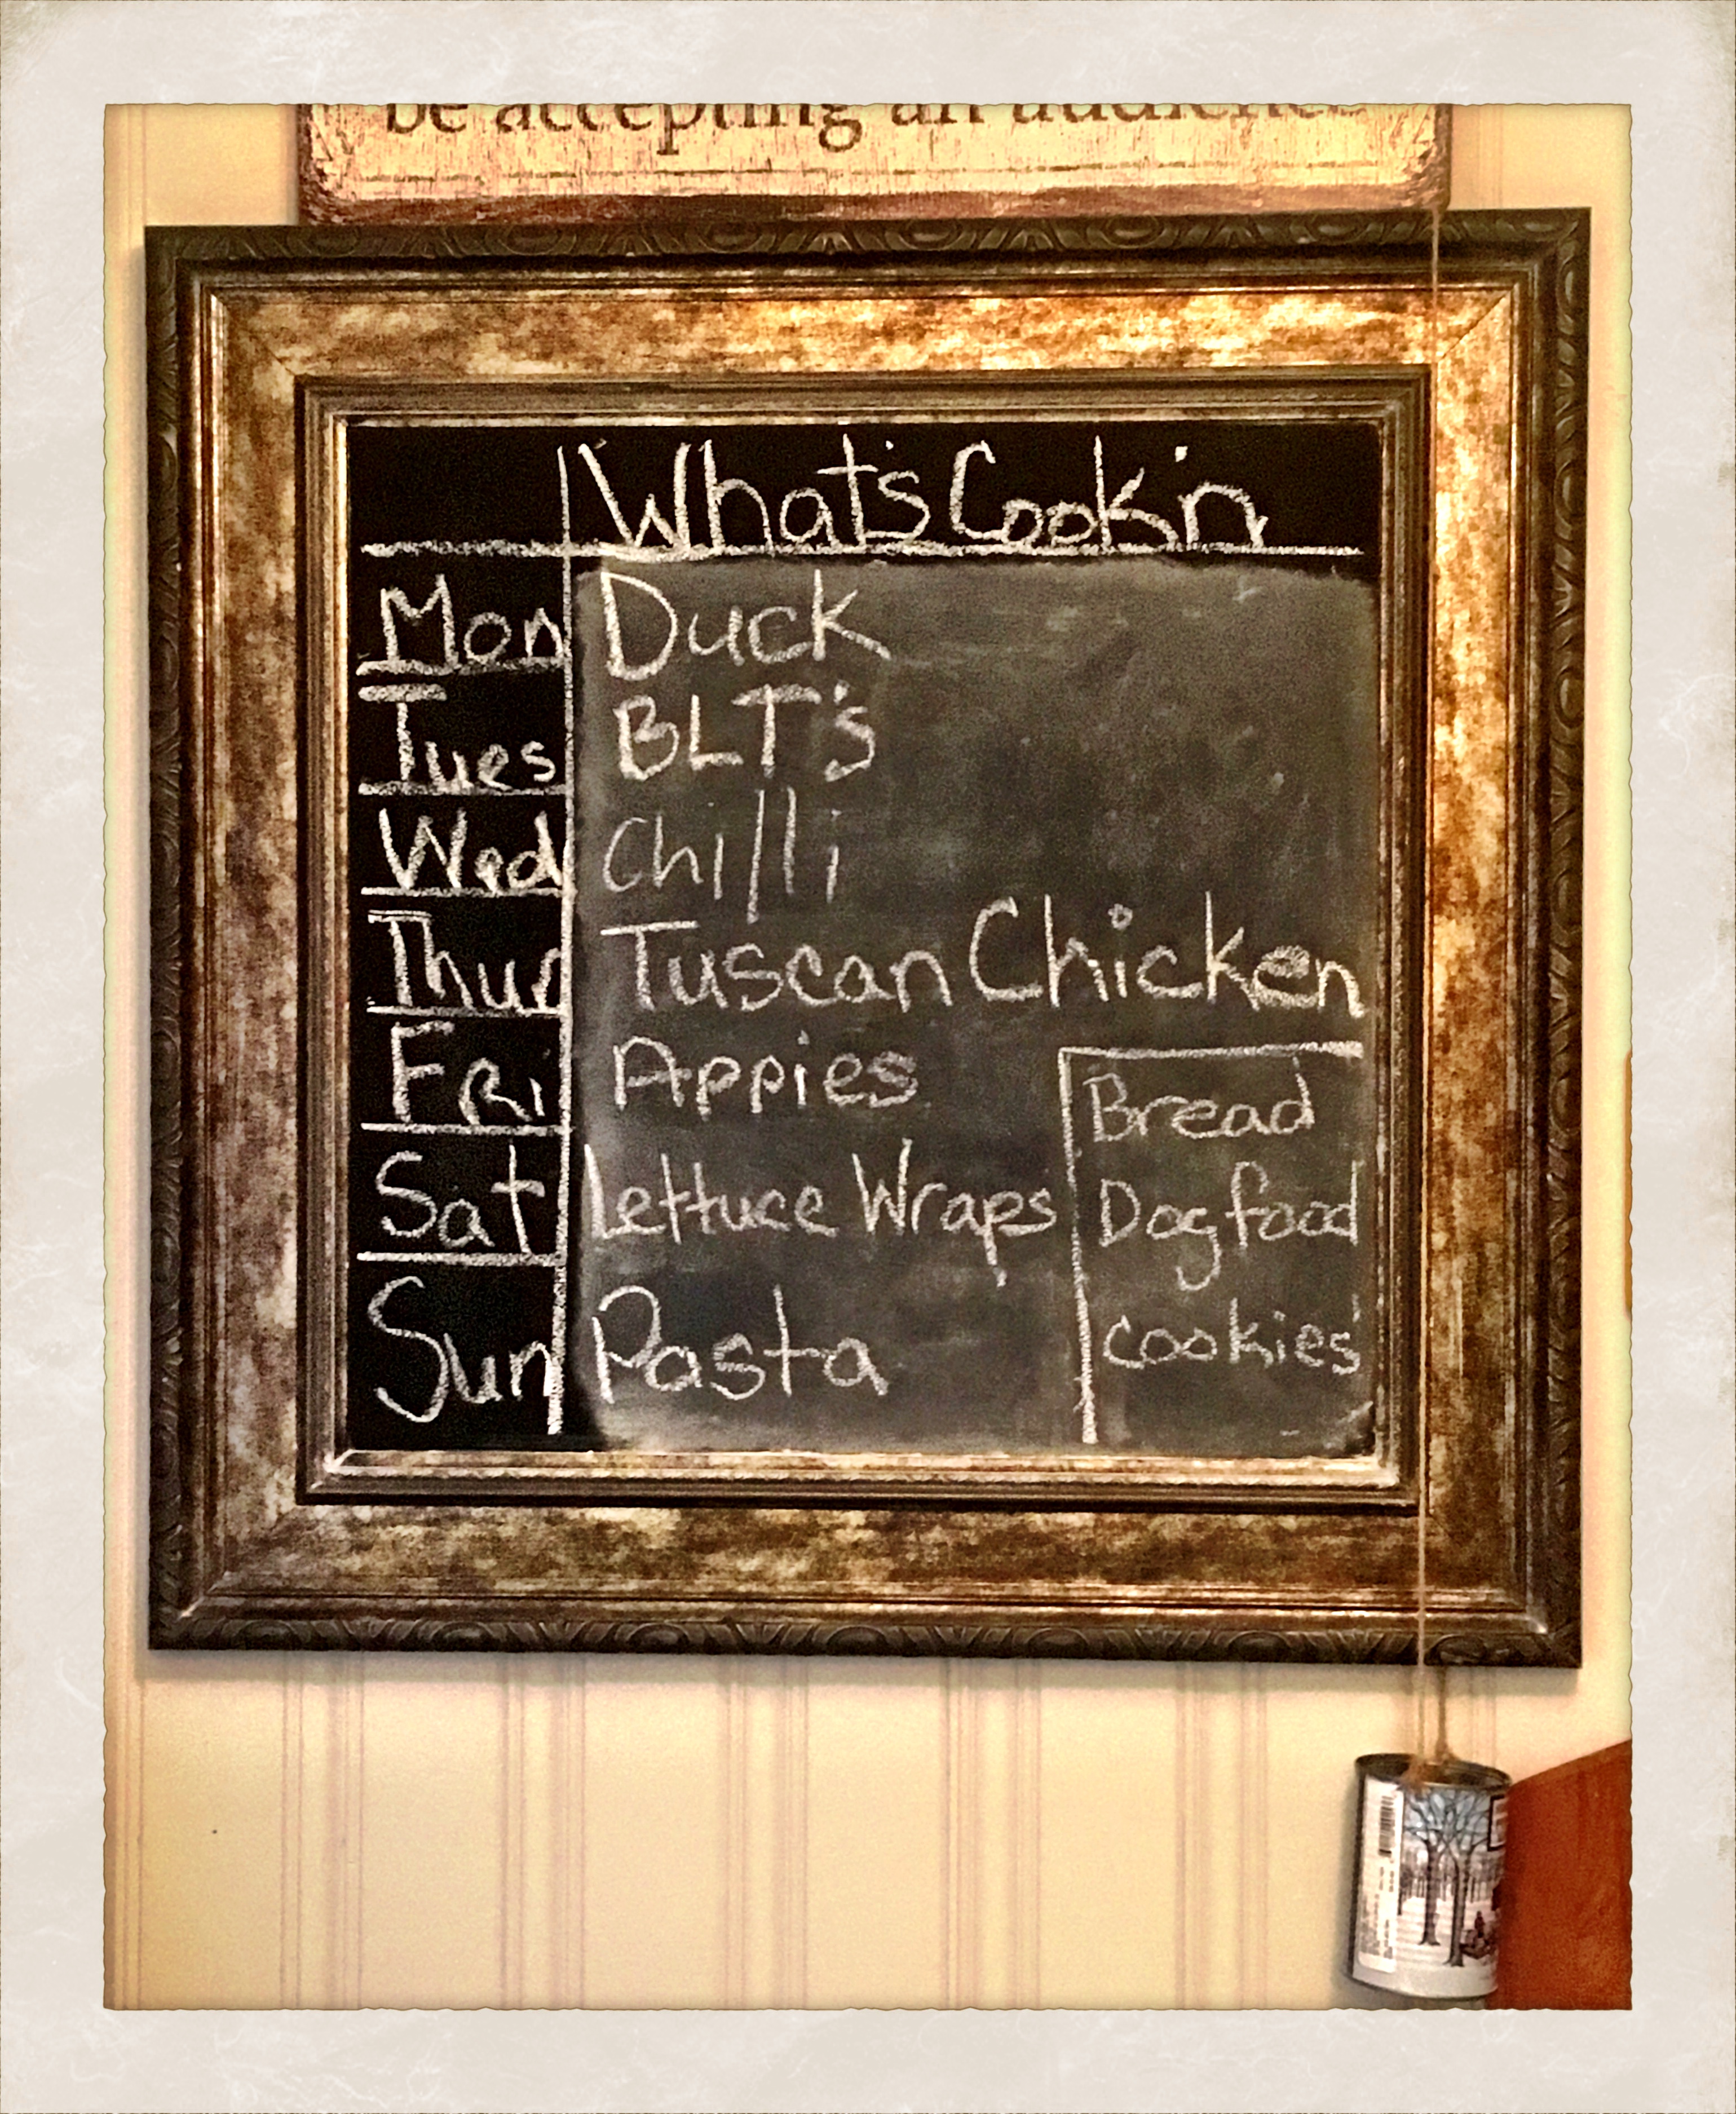 be accepting an audience
What's Cook'n
Mon Duck
Tues BLT's
Wed Chilli
Thur Tuscan Chicken
FRi Appies
Sat Lettuce Wraps
Sun Pasta
Bread
Dog food
cookies